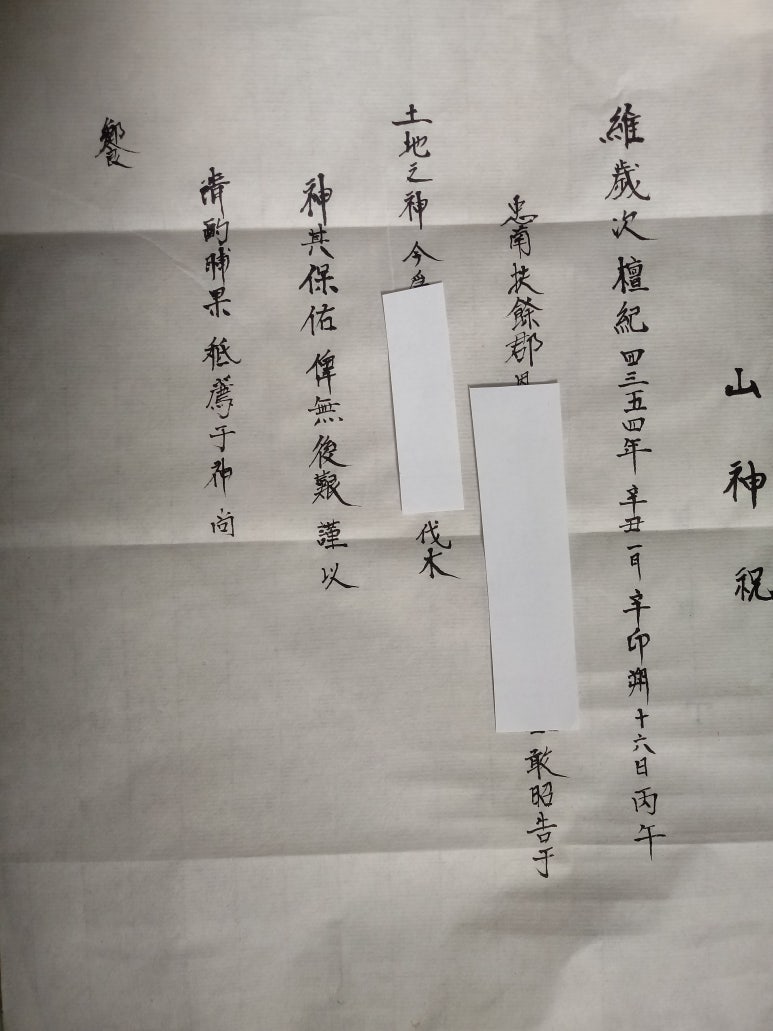 山神祝
維歲次檀紀四三五四年辛丑一月辛卯朔十六日丙午
忠南扶餘郡 敢昭告于
土地之神今爲 伐木
神其保佑俾無後艱謹以
清酌脯果祗薦于神尙
饗